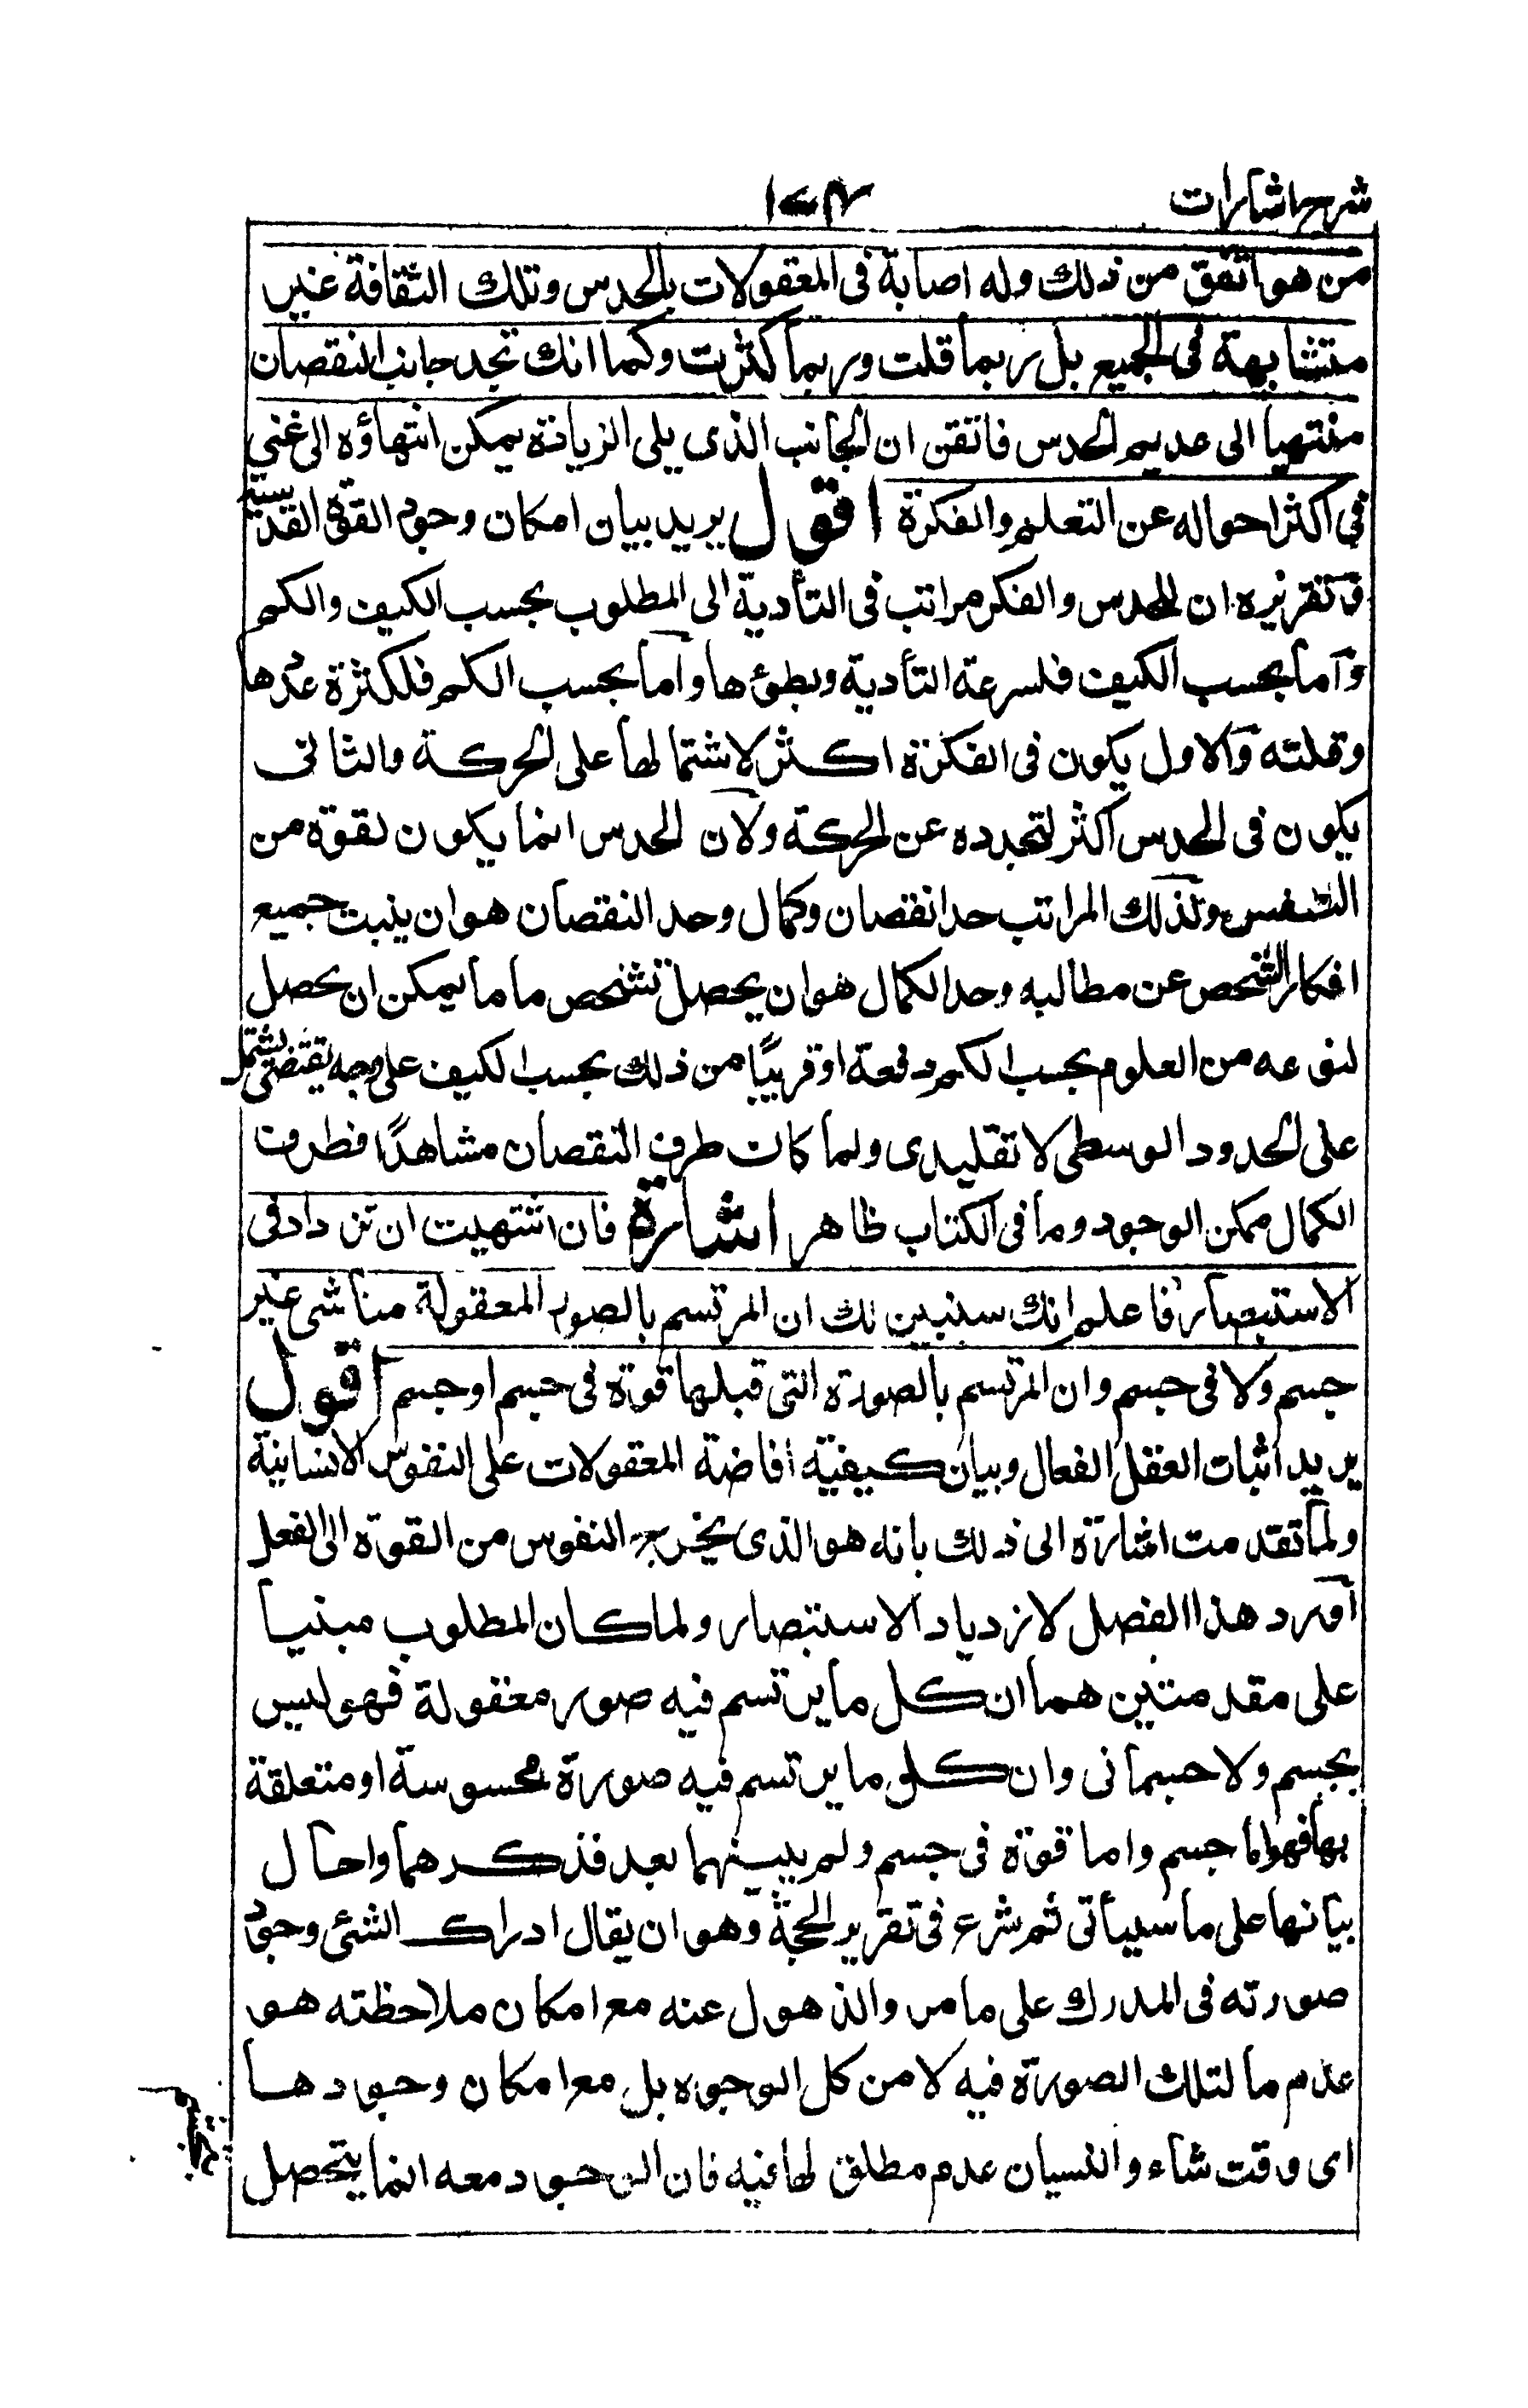 شرح اشارات
من هو اثقف من ذلك وله اصابة فى المعقولات بالحدس وتلك الثقافة غير
متشابهة فى الجميع بل ربما قلت وربما كثرت وكما انك تجد جانب النقصان
منتهيا الى عديم الحدس فاتقن ان الجانب الذى يلى الزيادة يمكن انتهاؤه الى غنى
فى اكثر احواله عن التعلم والفكرة اقول يريد بيان امكان وجود القوة القدسية
وتقريره ان للحدس والفكر مراتب فى التأدية الى المطلوب بحسب الكيف والكم
وآما بحسب الكيف فلسرعة التأدية وبطئ ها وآما بحسب الكم فلكثرة عددها
وقلته والاول يكون فى الفكرة اكثر لاشتمالها على الحركة والثانى
يكون فى الحدس اكثر لتجرده عن الحركة ولان الحدس انما يكون لقوة من
النفس ولذلك المراتب حدا نقصان وكمال وحد النقصان هو ان ينبت جميع
افكار الشخص عن مطالبه وحد الكمال هو ان يحصل لشخص ما ما يمكن ان يحصل
لنوعه من العلوم بحسب الكم دفعة او قريبًا من ذلك بحسب الكيف على وجه يقتضى يشتمل
على الحدود الوسطى لا تقليدى ولما كان طرف النقصان مشاهدًا فطرف
الكمال ممكن الوجود وما فى الكتاب ظاهر اشارة فان اشتهيت ان تزداد فى
الاستبصار فاعلم انك سنبين لك ان المرتسم بالصور المعقولة منا شى غير
جسم ولا فى جسم وان المرتسم بالصورة التى قبلها قوة فى جسم او جسم اقول
يريد اثبات العقل الفعال وبيان كيفية افاضة المعقولات على النفوس الانسانية
ولما تقدمت اشارة الى ذلك بانه هو الذى يخرج النفوس من القوة الى الفعل
آورد هذا الفصل لازدياد الاستبصار ولما كان المطلوب مبنيا
على مقدمتين هما ان كل ما يرتسم فيه صور معقولة فهو ليس
بجسم ولا جسمانى وان كل ما يرتسم فيه صورة محسوسة او متعلقة
بها فهو اما جسم واما قوة فى جسم ولم يبينهما بعد فذكرهما واحال
بيانها على ما سيأتى ثم شرع فى تقرير الحجة وهو ان يقال ادراك الشئ وجود
صورته فى المدرك على ما مر والذهول عنه مع امكان ملاحظته هو
عدم ما لتلك الصورة فيه لا من كل الوجوه بل مع امكان وجودها
اى وقت شاء والنسيان عدم مطلق لها فيه فان الوجود معه انما يتحصل